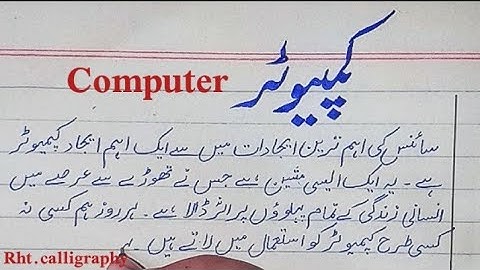 کمپیوٹر
Computer
سائنس کی اہم ترین ایجادات میں سے ایک اہم ایجاد کمپیوٹر
ہے۔ یہ ایک ایسی مشین ہے جس نے تھوڑے سے عرصے میں
انسانی زندگی کے تمام پہلوؤں پر اثر ڈالا ہے۔ ہر روز ہم کسی نہ
کسی طرح کمپیوٹر کو استعمال میں لاتے ہیں
Rht.calligraphy